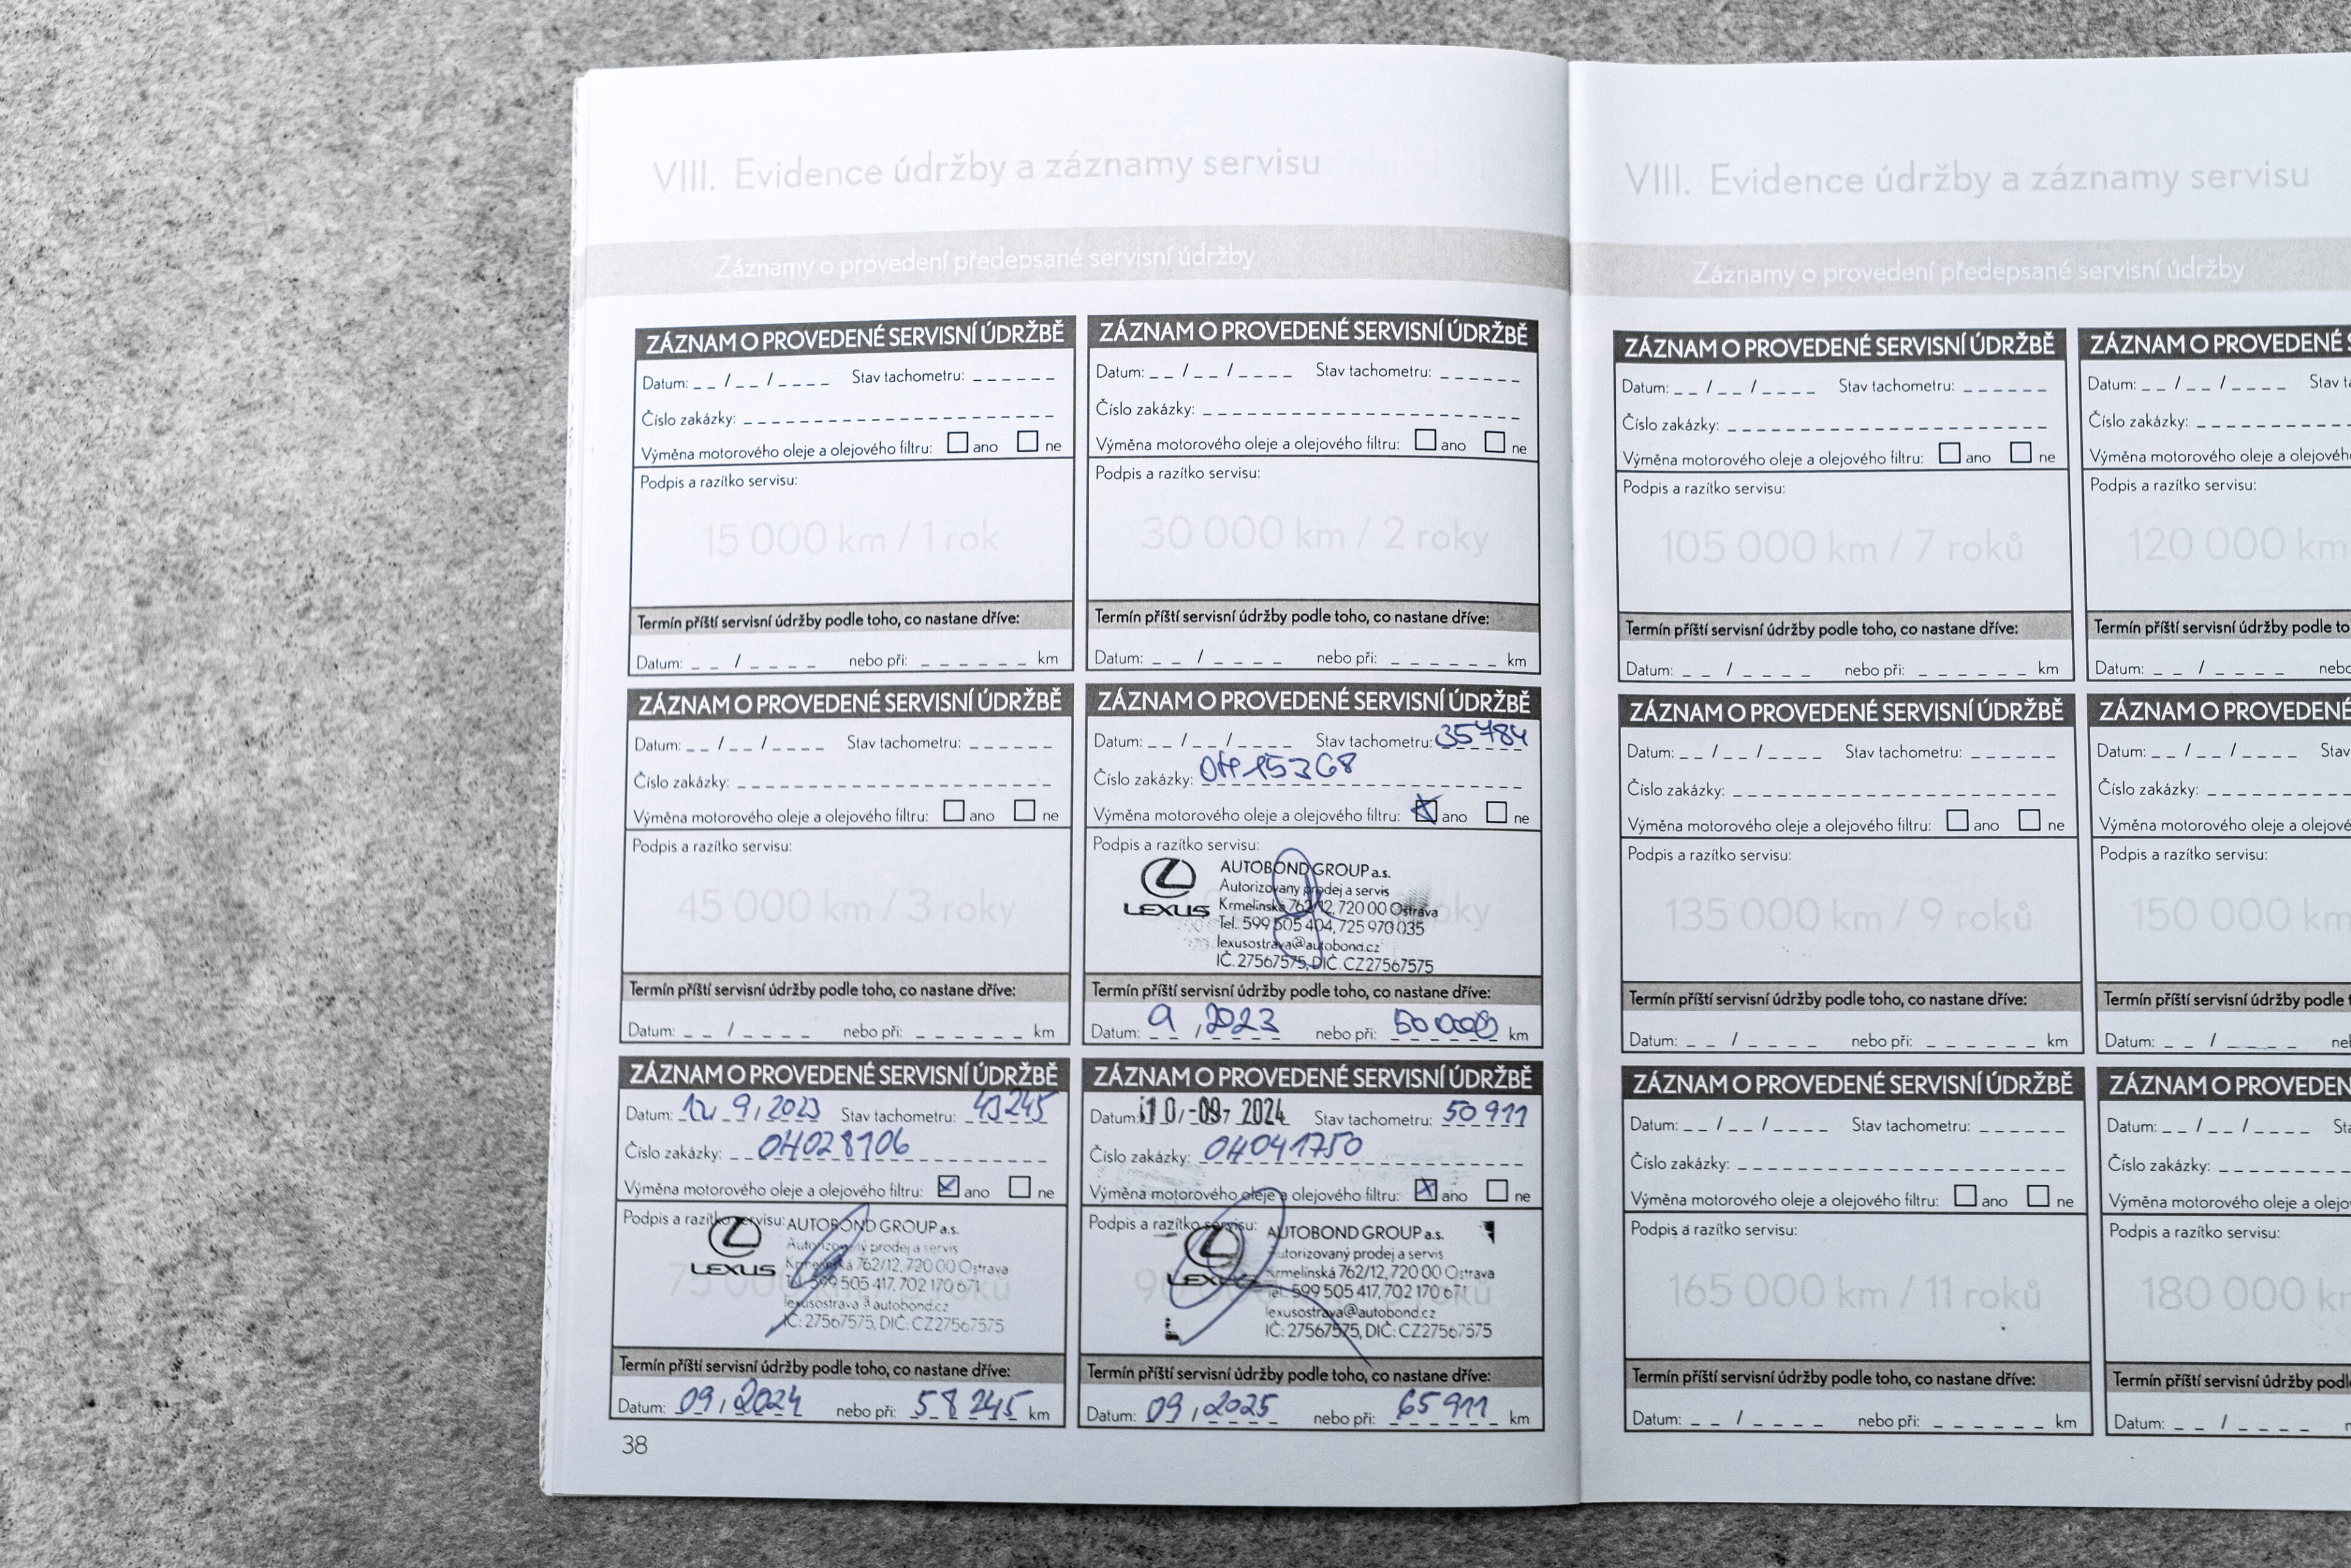 VIII. Evidence údržby a záznamy servisu
Záznamy o provedení předepsané servisní údržby
ZÁZNAM O PROVEDENÉ SERVISNÍ ÚDRŽBĚ
Datum: _ _ / _ _ / _ _ _ _ Stav tachometru: _ _ _ _ _ _
Číslo zakázky:
Výměna motorového oleje a olejového filtru: ano ne
Podpis a razítko servisu:
15 000 km / 1 rok
Termín příští servisní údržby podle toho, co nastane dříve:
Datum: _ _ / _ _ _ _ nebo při: _ _ _ _ _ _ km
ZÁZNAM O PROVEDENÉ SERVISNÍ ÚDRŽBĚ
Datum: _ _ / _ _ / _ _ _ _ Stav tachometru: _ _ _ _ _ _
Číslo zakázky:
Výměna motorového oleje a olejového filtru: ano ne
Podpis a razítko servisu:
30 000 km / 2 roky
Termín příští servisní údržby podle toho, co nastane dříve:
Datum: _ _ / _ _ _ _ nebo při: _ _ _ _ _ _ km
ZÁZNAM O PROVEDENÉ SERVISNÍ ÚDRŽBĚ
Datum: _ _ / _ _ / _ _ _ _ Stav tachometru: _ _ _ _ _ _
Číslo zakázky:
Výměna motorového oleje a olejového filtru: ano ne
Podpis a razítko servisu:
45 000 km / 3 roky
Termín příští servisní údržby podle toho, co nastane dříve:
Datum: _ _ / _ _ _ _ nebo při: _ _ _ _ _ _ km
ZÁZNAM O PROVEDENÉ SERVISNÍ ÚDRŽBĚ
Datum: _ _ / _ _ / _ _ _ _ Stav tachometru: 35784
Číslo zakázky:
Výměna motorového oleje a olejového filtru: ano ne
Podpis a razítko servisu:
AUTOBOND GROUP a.s.
Autorizovaný prodej a servis
LEXUS Krmelínská 762/12, 720 00 Ostrava
Tel.: 599 505 404, 725 970 035
lexusostrava@autobond.cz
IČ: 27567575, DIČ: CZ27567575
Termín příští servisní údržby podle toho, co nastane dříve:
Datum: 9 / 2023 nebo při: 50 000 km
ZÁZNAM O PROVEDENÉ SERVISNÍ ÚDRŽBĚ
Datum: 12 / 9 / 2023 Stav tachometru: 43245
Číslo zakázky: OH028106
Výměna motorového oleje a olejového filtru: ano ne
Podpis a razítko servisu: AUTOBOND GROUP a.s.
Autorizovaný prodej a servis
Krmelínská 762/12, 720 00 Ostrava
LEXUS Tel.: 599 505 417, 702 170 671
lexusostrava@autobond.cz
IČ: 27567575, DIČ: CZ27567575
Termín příští servisní údržby podle toho, co nastane dříve:
Datum: 09 / 2024 nebo při: 58 245 km
ZÁZNAM O PROVEDENÉ SERVISNÍ ÚDRŽBĚ
Datum: 10 -09- 2024 Stav tachometru: 50 911
Číslo zakázky: OH041750
Výměna motorového oleje a olejového filtru: ano ne
Podpis a razítko servisu: AUTOBOND GROUP a.s.
Autorizovaný prodej a servis
LEXUS Krmelínská 762/12, 720 00 Ostrava
Tel.: 599 505 417, 702 170 671
lexusostrava@autobond.cz
IČ: 27567575, DIČ: CZ27567575
Termín příští servisní údržby podle toho, co nastane dříve:
Datum: 09 / 2025 nebo při: 65 911 km
38
VIII. Evidence údržby a záznamy servisu
Záznamy o provedení předepsané servisní údržby
ZÁZNAM O PROVEDENÉ SERVISNÍ ÚDRŽBĚ
Datum: _ _ / _ _ / _ _ _ _ Stav tachometru: _ _ _ _ _ _
Číslo zakázky:
Výměna motorového oleje a olejového filtru: ano ne
Podpis a razítko servisu:
105 000 km / 7 roků
Termín příští servisní údržby podle toho, co nastane dříve:
Datum: _ _ / _ _ _ _ nebo při: _ _ _ _ _ _ km
ZÁZNAM O PROVEDENÉ
Datum: _ _ / _ _ / _ _ _ _
Číslo zakázky:
Výměna motorového oleje a
Podpis a razítko servisu:
120 000 km
Termín příští servisní údržby podle
Datum: _ _ / _ _ _ _
ZÁZNAM O PROVEDENÉ SERVISNÍ ÚDRŽBĚ
Datum: _ _ / _ _ / _ _ _ _ Stav tachometru: _ _ _ _ _ _
Číslo zakázky:
Výměna motorového oleje a olejového filtru: ano ne
Podpis a razítko servisu:
135 000 km / 9 roků
Termín příští servisní údržby podle toho, co nastane dříve:
Datum: _ _ / _ _ _ _ nebo při: _ _ _ _ _ _ km
ZÁZNAM O PROVEDENÉ
Datum: _ _ / _ _ / _ _ _ _ Stav
Číslo zakázky:
Výměna motorového oleje a
Podpis a razítko servisu:
150 000 km
Termín příští servisní údržby podle
Datum: _ _ / _ _ _ _
ZÁZNAM O PROVEDENÉ SERVISNÍ ÚDRŽBĚ
Datum: _ _ / _ _ / _ _ _ _ Stav tachometru: _ _ _ _ _ _
Číslo zakázky:
Výměna motorového oleje a olejového filtru: ano ne
Podpis a razítko servisu:
165 000 km / 11 roků
Termín příští servisní údržby podle toho, co nastane dříve:
Datum: _ _ / _ _ _ _ nebo při: _ _ _ _ _ _ km
ZÁZNAM O
Datum: _ _ / _ _ / _ _ _ _
Číslo zakázky:
Výměna motorového oleje a
Podpis a razítko servisu:
180 000
Termín příští servisní údržby podle
Datum: _ _ / _ _ _ _